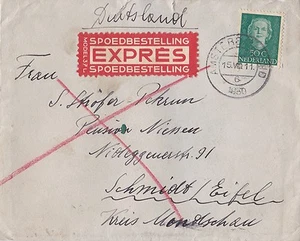 Duitsland
SPOEDBESTELLING
EXPRÈS
SPOEDBESTELLING
50 C
NEDERLAND
AMSTERDAM
1950
Frau
S. Ströfer-
Pension Niessen
Nideggenerstr. 91
Schmidt/Eifel
Kreis Monschau